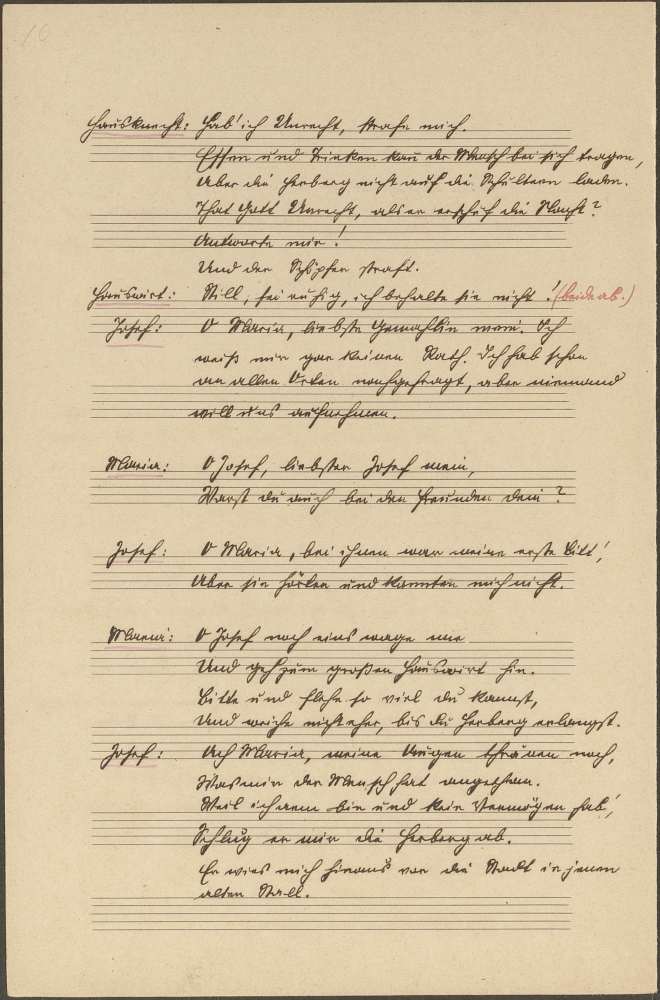 16
Hausknecht: Hab' ich Unrecht, strafe mich.
Essen und Trinken kan der Mensch bei sich tragen,
Aber die Herberg nicht auf die Schultern laden.
That Gott Unrecht, als er erschuf die Nacht?
Antworte mir!
Und der Schöpfer straft.
Hauswirt: Still, sei ruhig, ich behalte sie nicht! (beide ab.)
Josef: O Maria, liebste Gemahlin mein. Ich
weiß mir gar keinen Rath. Ich hab schon
an allen Orten nachgefragt, aber niemand
will uns aufnehmen.
Maria: O Josef, liebster Josef mein,
Warst du auch bei den Freunden dein?
Josef: O Maria, bei ihnen war meine erste Bitt',
Aber sie hörten und kannten mich nicht.
Maria: O Josef noch eins wage nur
Und geh zum großen Hauswirt hin.
Bitte und flehe so viel du kannst,
Und weiche nicht eher, bis du Herberg erlangst.
Josef: Ach Maria, meine Augen thränen noch,
Was mir der Mensch hat angethan.
Weil ich arm bin und kein Vermögen hab',
Schlug er mir die Herberg ab.
Er wies mich hinaus vor die Stadt in jenen
alten Stall.